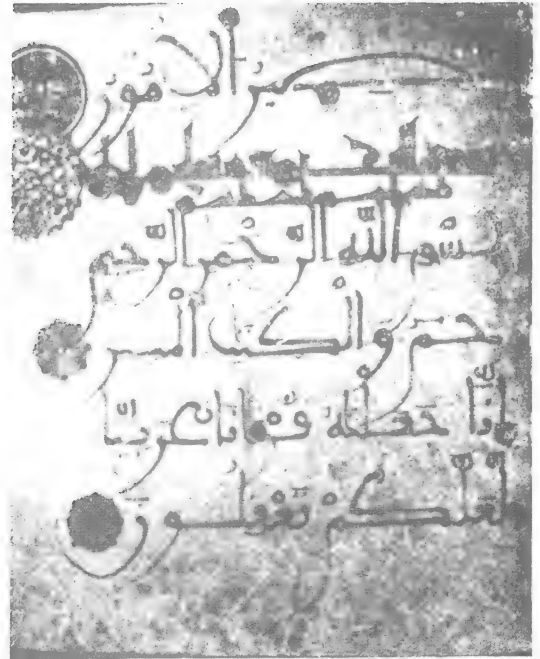 تصير الأمور
بِسْمِ اللَّهِ الرَّحْمٰنِ الرَّحِيمِ
حمٓ وَالْكِتٰبِ الْمُبِين
إِنَّا جَعَلْنٰهُ قُرْءَانًا عَرَبِيًّا
لَّعَلَّكُمْ تَعْقِلُونَ